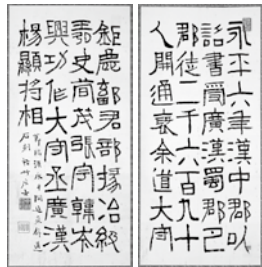 永平六年漢中郡以
詔書受廣漢蜀郡巴
郡徒二千六百九十
人開通褒余道大守
鉅鹿鄐君部掾治級
史荀茂張宇韓岑
興功作大守丞廣漢
楊顯將相